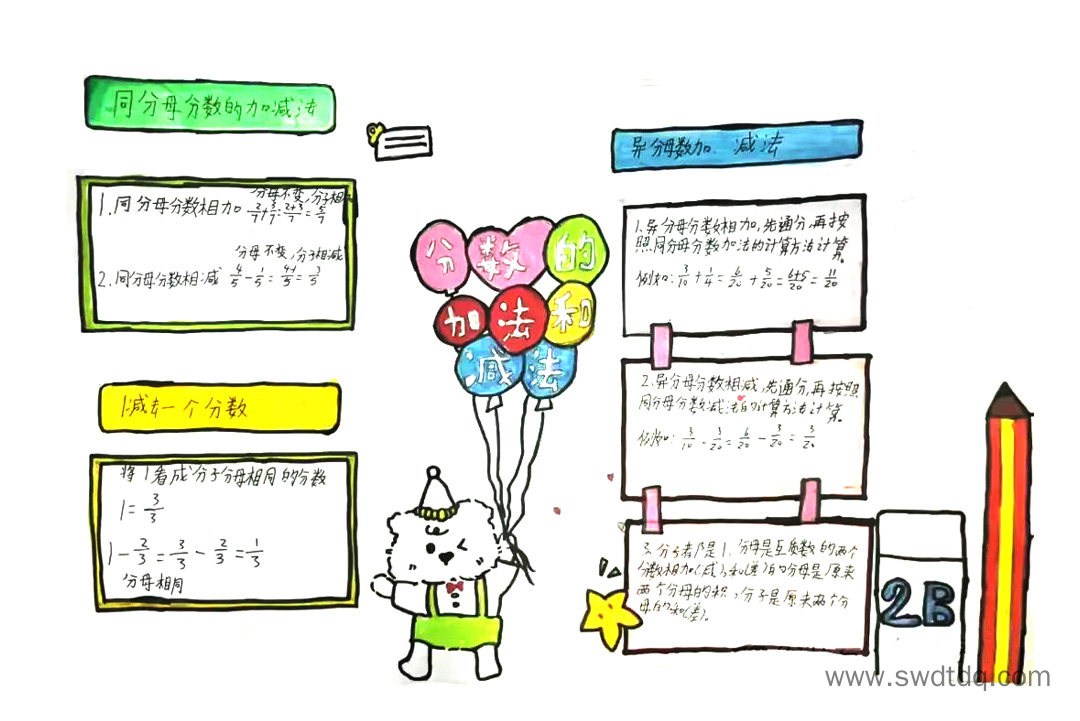 同分母分数的加减法
1.同分母分数相加 2/7+3/7=2+3/7=5/7
分母不变,分子相加
分母不变,分子相减
2.同分母分数相减 4/5-1/5=4-1/5=3/5
1减去一个分数
将1看成分子分母相同的分数
1=3/3
1-2/3=3/3-2/3=1/3
分母相同
分数的
加法和
减法
异分母数加、减法
1.异分母分数相加,先通分,再按
照同分母分数加法的计算方法计算。
例如:3/10+1/4=6/20+5/20=6+5/20=11/20
2.异分母分数相减,先通分,再按照
同分母分数减法的计算方法计算。
例如:3/10-3/20=6/20-3/20=3/20
3.分子都是1,分母是互质数的两个
分数相加(减),和(差)的分母是原来
两个分母的积,分子是原来两个分
母的和(差)。
2B
www.swdtdq.com